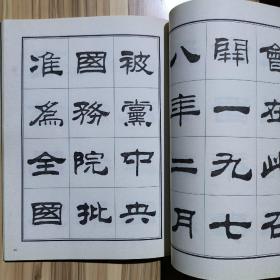 會在此召
開一九七
八年二月
被黨中央
國務院批
准為全國